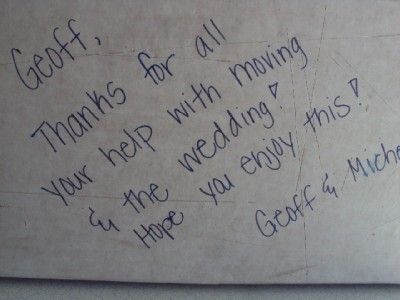 Geoff,
Thanks for all
your help with moving
& the wedding!
Hope you enjoy this!
Geoff & Miche